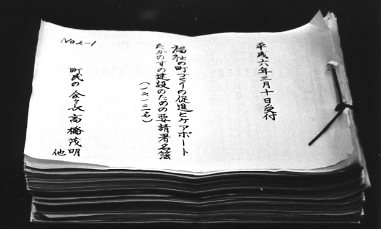 平成六年三月十日受付
福祉の町づくりの促進とケアポート
たかのすの建設のための要請署名簿
町民の会々長 高橋茂明
他